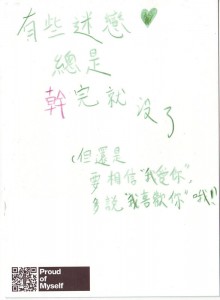 有些迷戀
總是
幹完就没了
(但還是
要相信"我愛你",
多説"我喜歡你"哦!!
Proud
of
Myself